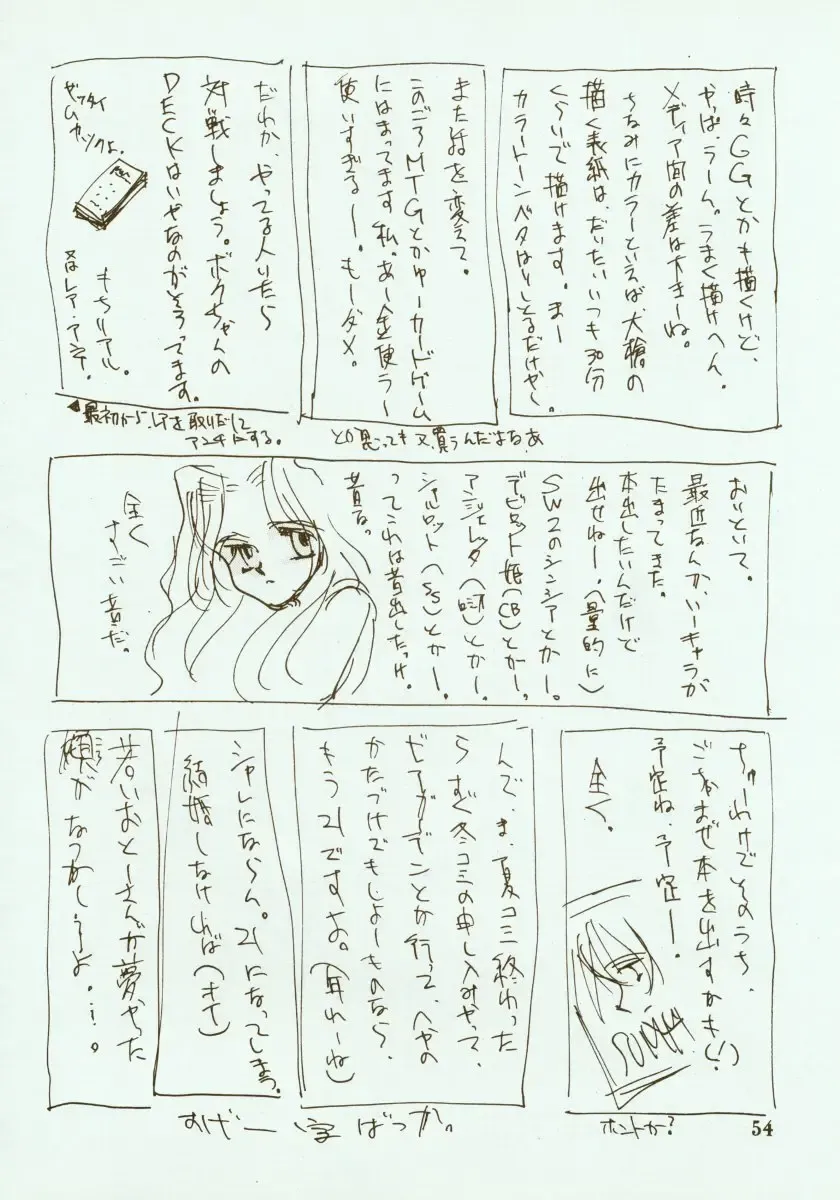 時々GGとかも描くけど、
やっぱ、うーん。うまく描けへん。
メディア間の差は大きーね。
ちなみにカラーといえば、犬槍の
描く表紙は、だいたいいつも30分
くらいで描けます。まー
カラートーンベタはりしとるだけやし
また話を変えて。
このごろMTGとかゆーカードゲーム
にはまってます私。あー金使うー
使いすぎるー。もーダメ。
と思っても又、買うんだよなあ
だれか、やってる人いたら
対戦しましょう。ボクちゃんの
DECKはいやなのがそろってます。
もちリアル。
名はレア・アンテ。
最初からレアを取りだして
アンティにする。
おいといて。
最近なんか、いーキャラが
たまってきた。
本出したいんだけど
出せねー。(量的に)
SW2のシンシアとかー。
デビロット姫(CB)とかー、
アンジェレッタ
とかー。
シャルロット(SS)とかー。
ってこれは昔出したっけ。
昔な。
全く
すごい昔だ。
ちゅーわけでそのうち、
ごちゃまぜ本を出すかも(!)
予定ね、予定ー。
全く。
ホントか?
んで、ま、夏コミ終わった
らすぐ冬コミの申し込みやって、
ビアガーデンとか行って、へやの
かたづけでもしよーものなら、
もう21ですな。(耳わーね)
シャレにならん。21になってしまう。
結婚しなければ(オイ)
若いおとーさんが夢やった
頃がなつかしーよ。…。
すげー字ばっか。
54